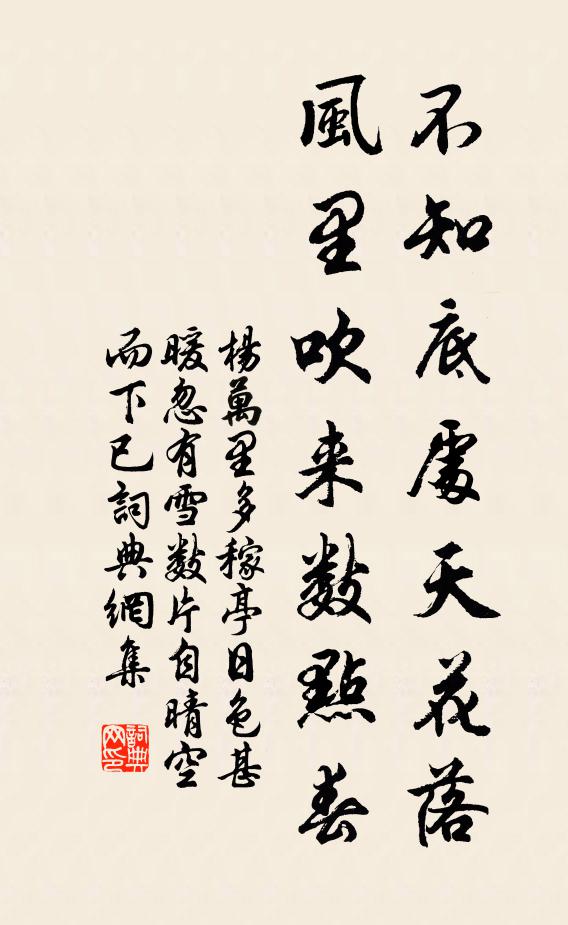 不知底處天花落
風里吹来數點春
楊萬里多稼亭日色甚
暖忽有雪数片自晴空
而下已詞典網集
詞典
网印